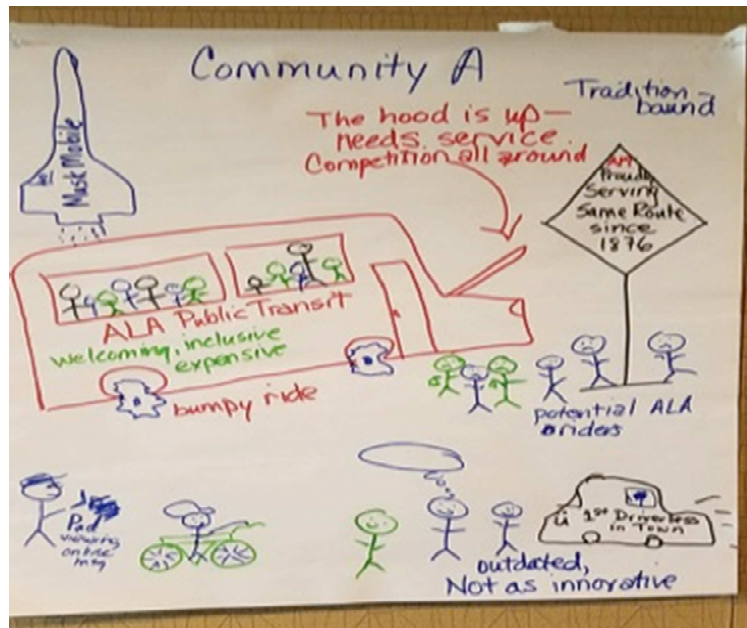 Community A
Tradition-
bound
The hood is up—
needs service
Competition all around
Musk Mobile
Proudly
Serving
Same Route
since
1876
ALA Public Transit
welcoming, inclusive
expensive
bumpy ride
potential ALA
riders
viewing
online
mtg
1st Driverless
in Town
outdated,
Not as innovative